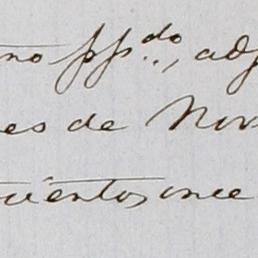 no ppdo., adj
es de Nov
cientos once